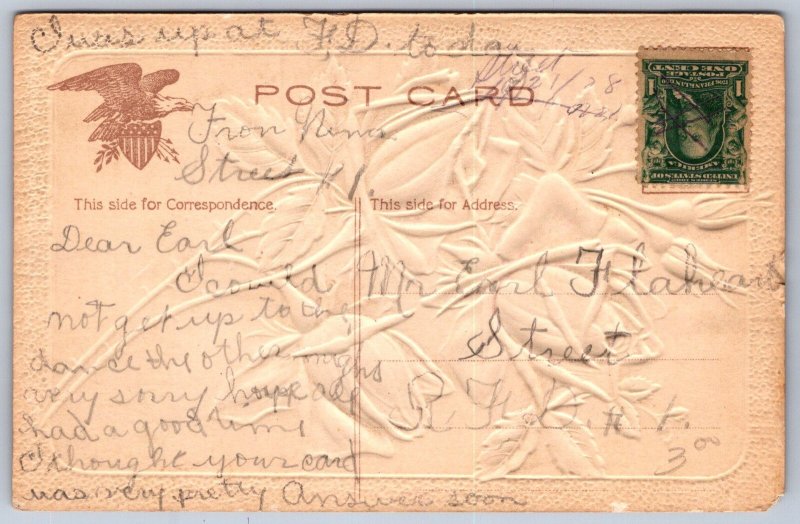 I was up at F.D. today
POST CARD
Street
2/28
From Nina
Street #1.
This side for Correspondence.
This side for Address.
Dear Earl
I could
not get up to the
dance the other night
very sorry hope all
had a good time
I thought your card
was very pretty Answer soon
Mr Earl Flaheart
Street
R. F. D. # 1.
3 00
ONE CENT
POSTAGE
1 1
AMERICA
UNITED STATES OF